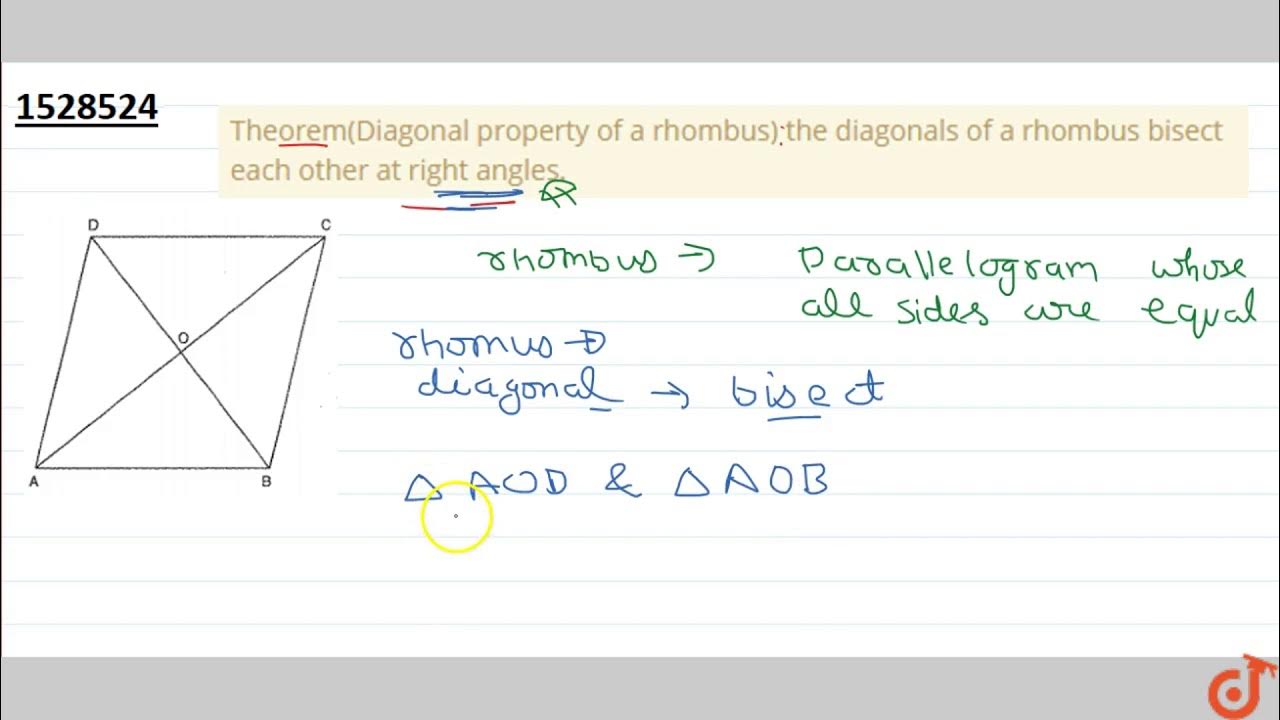 1528524
Theorem(Diagonal property of a rhombus):the diagonals of a rhombus bisect
each other at right angles.
D
C
O
A
B
rhombus → Parallelogram whose
all sides are equal
rhomus →
diagonal → bisect
△ AOD & △ AOB